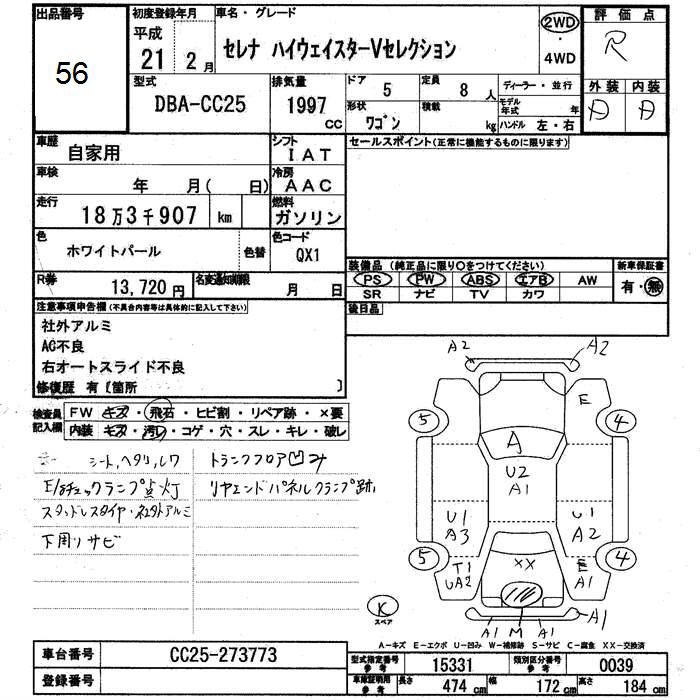 出品番号
56
初度登録年月
平成
21年 2月
車名・グレード
セレナ ハイウェイスターVセレクション
2WD
4WD
評価点
R
外装 内装
D D
型式
DBA-CC25
排気量
1997
cc
ドア
5
定員
8 人
形状
ワゴン
積載
kg
ディーラー・並行
モデル年式 年
ハンドル 左・右
車歴
自家用
シフト
IAT
車検
年 月( 日)
冷房
AAC
走行
18万3千907 km
燃料
ガソリン
色
ホワイトパール
色替
色コード
QX1
R券
13,720円
名変通知期限
月 日
セールスポイント(正常に機能するものに限ります)
装備品 (純正品に限り○をつけてください)
PS PW ABS エアB AW
SR ナビ TV カワ
新車保証書
有・無
後日品
注意事項申告欄(不具合内容等は具体的に記入して下さい)
社外アルミ
AC不良
右オートスライド不良
修復歴 有〔箇所 〕
検査員記入欄
FW キズ・飛石・ヒビ割・リペア跡・×要
内装 キズ・汚レ・コゲ・穴・スレ・キレ・破レ
シート,ヘタリ,シワ
トランクフロア凹み
E/gチェックランプ点灯
リヤエンドパネルクランプ跡,
スタッドレスタイヤ・社外アルミ
下周リサビ
A2 A2
E
5 4
A
U2
A1
U1
A3
U1
A2
5 4
T1
UA2
XX
E
A1
K
スペア
A1 M A1
A1
A-キズ E-エクボ U-凹み W-補修跡 S-サビ C-腐食 XX-交換済
車台番号
CC25-273773
登録番号
型式指定番号
参考
15331
類別区分番号
参考
0039
車庫証明用
参考
長さ
474 cm
幅
172 cm
高さ
184 cm